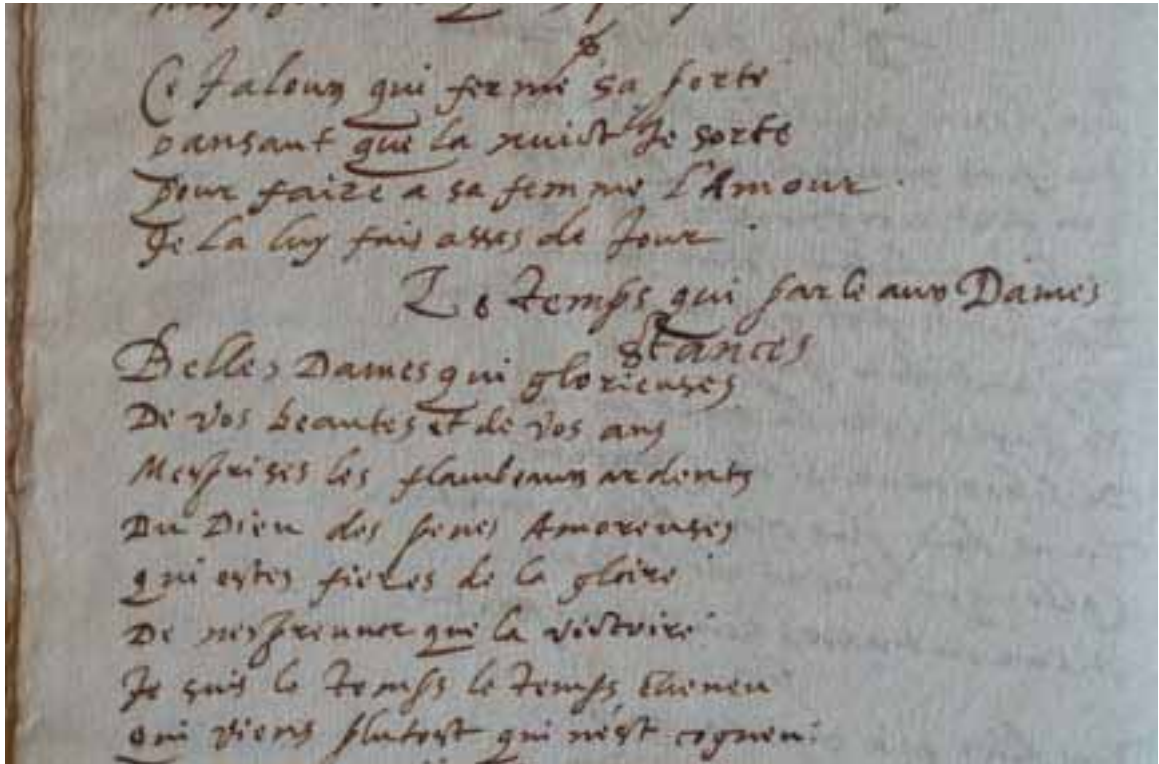 Ce Jaloux qui ferme sa porte
pansant que la nuict Je sorte
pour faire a sa femme l'Amour.
Je la luy fais asses de Jour
Le Temps qui parle aux Dames
stances
Belles Dames qui glorieuses
De vos beautes et de vos ans
Mesprises les flambeaux ardents
Du Dieu des penes Amoreuses
qui estes fieres de la gloire
De nespreuuer que la victoire
Je suis le Temps le Temps
qui viens plutost qui nest cogneu